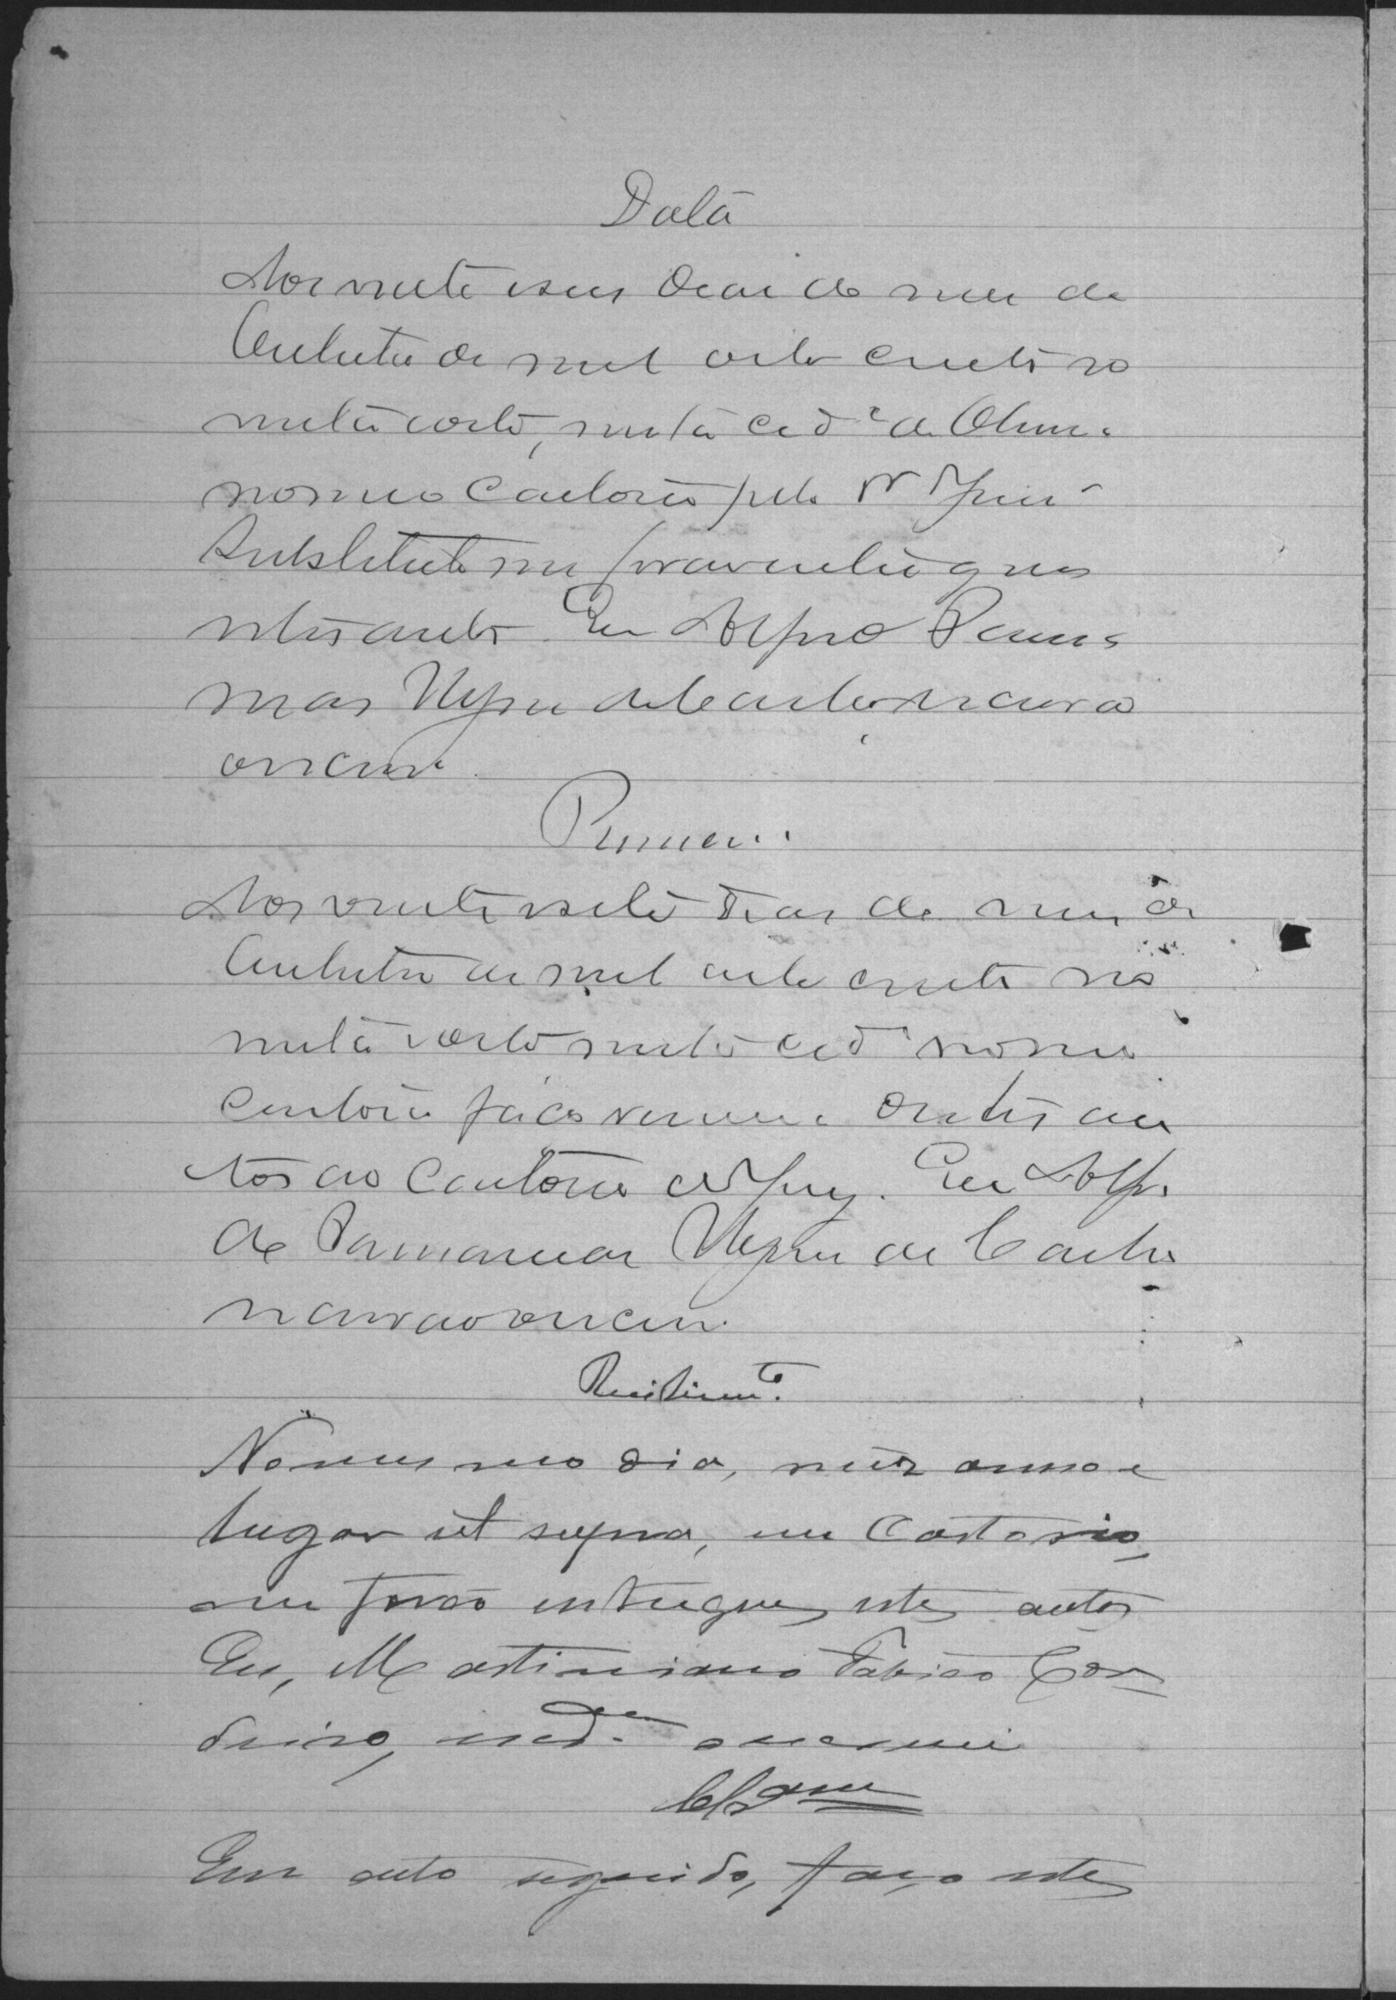 Data
Aos vinte e seis dias do mez de
Outubro de mil oito centos no
venta e oito, nesta cidᵉ de
no meo Cartorio pelo Dʳ Juiz
Substituto me foram entregues
estes autos. Eu Alfredo
mas de Castro escrivão
o escrevi.
Remessa
Aos vinte e sete dias do mez de
Outubro de mil oito centos no
venta e oito nesta cidᵉ no meo
cartorio faço remessa destes au
tos ao Cartorio do Jury. Eu Alfre
do de Castro
escrivão o escrevi.
Recebimᵗᵒ.
No mesmo dia, mez anno e
lugar ut supra, em Cartorio,
me forão entregues estes autos
Eu, Martiniano Fabião Cor
deiro, escᵃᵐ o escrevi
Clsᵃᵐ
Em acto seguido, faço estes